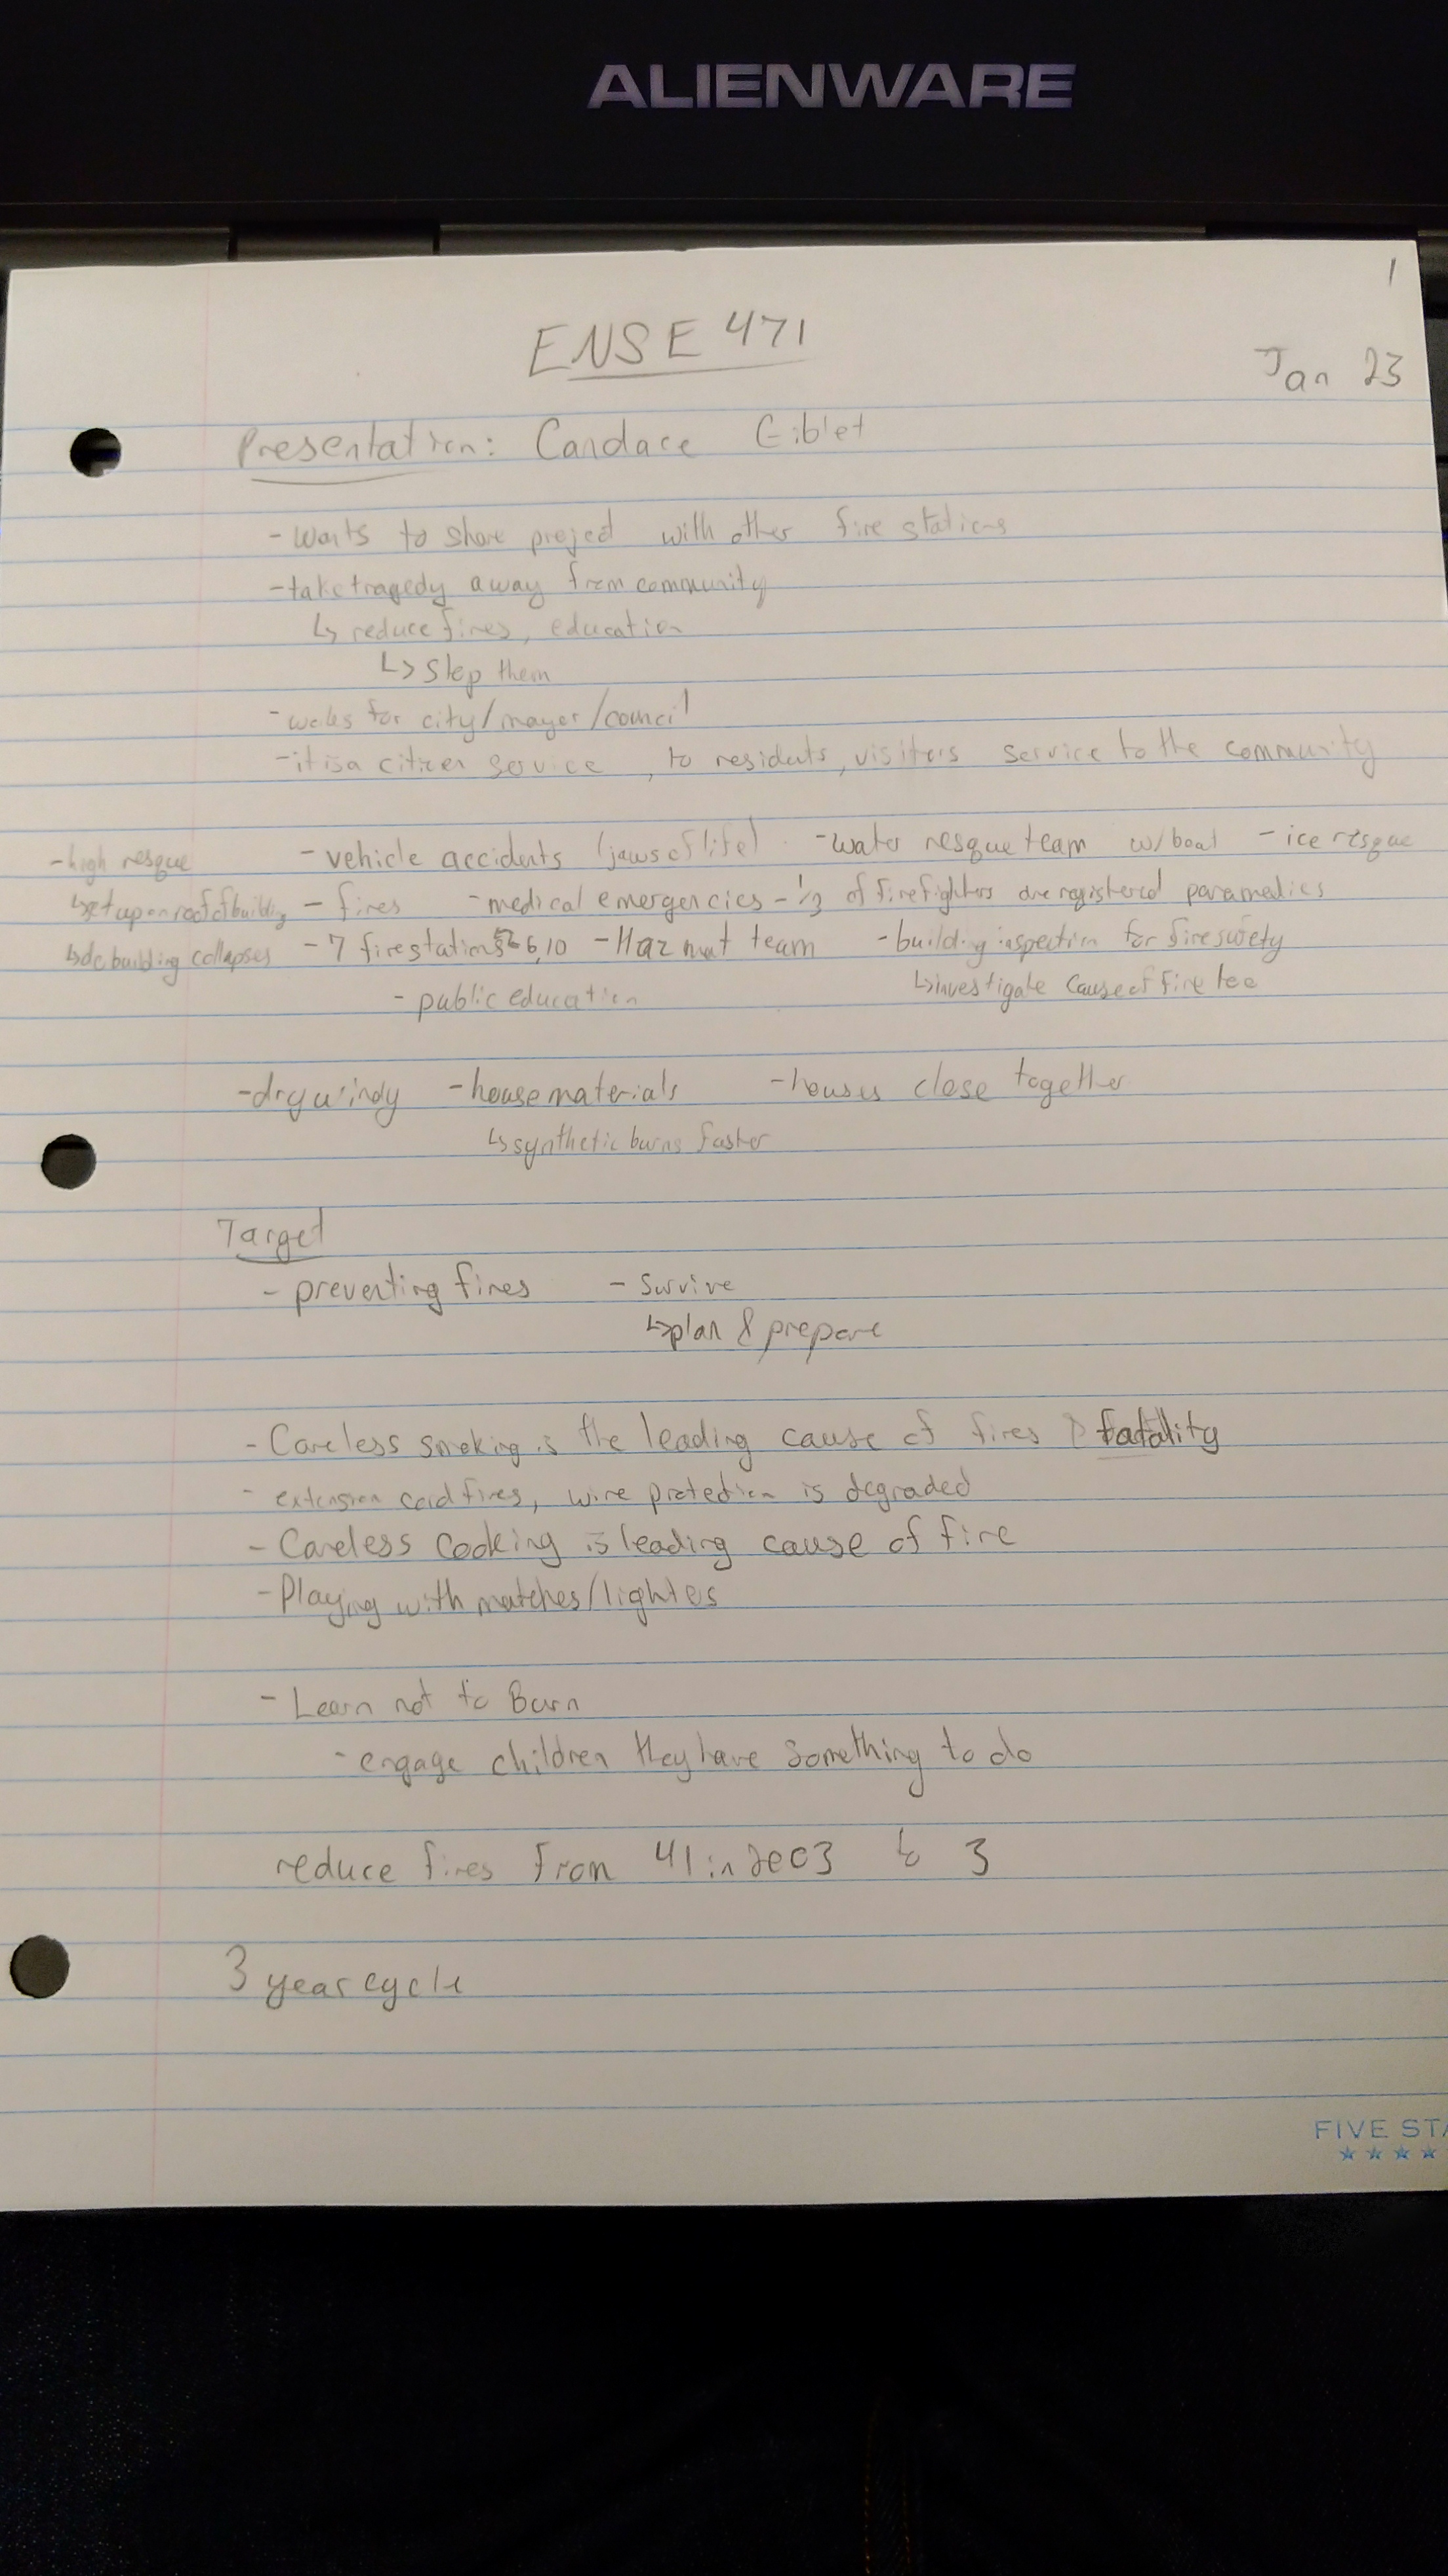 ALIENWARE
1
ENSE 471
Jan 23
Presentation: Candace Giblet
- wants to share project with other fire stations
- take tragedy away from community
↳ reduce fires, education
↳ stop them
- works for city/mayor/council
- it is a citizen service, to residents, visitors service to the community
- high resque - vehicle accidents (jaws of life) - water resque team w/boat - ice resque
↳ set up on roof of building - fires - medical emergencies - 1/3 of firefighters are registered paramedics
↳ do building collapses - 7 firestations 6,10 - Hazmat team - building inspection for fire
- public education ↳ investigate cause of fire too
- dry windy - house materials - houses close together
↳ synthetic burns faster
Target
- preventing fires - Survive
↳ plan & prepare
- Careless smoking is the leading cause of fires fatality
- extension cord fires, wire protection is degraded
- Careless cooking is leading cause of fire
- Playing with matches/lighters
- Learn not to Burn
- engage children they have something to do
reduce fires from 41 in 2003 to 3
3 year cycle
FIVE STA